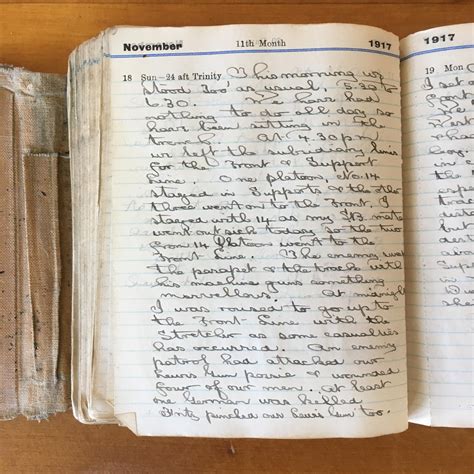 November 11th Month 1917
18 Sun–24 aft Trinity This morning we
stood "too" as usual, 5.30 to
6.30. We have had
nothing to do all day so
have been sitting in the
trench. At 4.30 p.m
we left the subsidiary lines
for the Front & Support
Line. One platoon, No. 14
stayed in Supports & the other
three went on to the Front. I
stayed with 14 as my mate
went out sick today so the two
from 14 Platoon went to the
Front Line. The enemy
the parapet & the tracks with
his machine guns something
marvellous. At midnight
I was roused to go up to
the Front Line with the
Stretcher as some casualties
has occurred. An enemy
patrol had attacked our
Lewis Gun possie & wounded
four of our men. At least
one German was killed
They pinched our Lewis Gun too.
1917
19 Mon